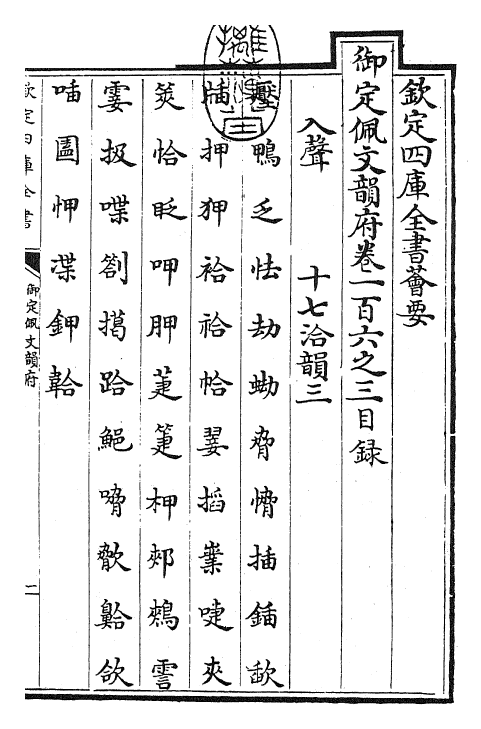 欽定四庫全書薈要
御定佩文韻府卷一百六之三目録
入聲 十七洽韻三
壓鴨乏怯劫蜐脅愶插鍤歃
牐押狎袷祫帢翣搯業啑夾
筴恰眨呷胛萐箑柙郟鵊霅
霎扱喋劄擖跲䱟嗋歕鼛欱
喢圔㤉渫鉀韐
欽定四庫全書
御定佩文韻府
一